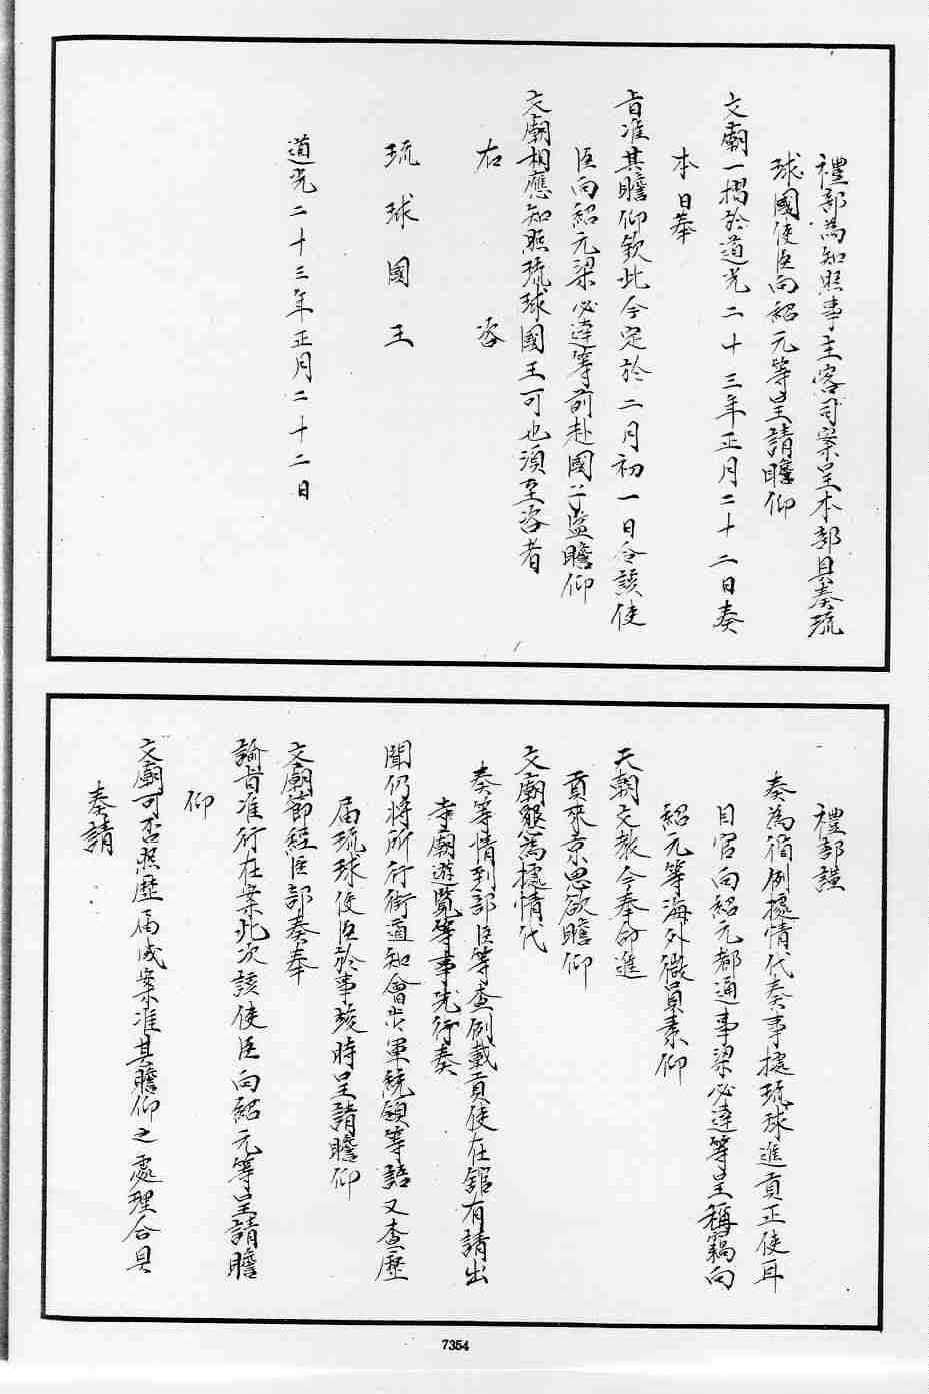 禮部為知照事主客司案呈本部具奏琉
球國使臣向紹元等呈請瞻仰
文廟一摺於道光二十三年正月二十二日奏
本日奉
旨准其瞻仰欽此今定於二月初一日令該使
臣向紹元梁必達等前赴國子監瞻仰
文廟相應知照琉球國王可也須至咨者
右咨
琉球國王
道光二十三年正月二十二日
禮部謹
奏為循例據情代奏事據琉球進貢正使耳
目官向紹元都通事梁必達等呈稱竊向
紹元等海外微員素仰
天朝文教今奉命進
貢來京思欲瞻仰
文廟懇為據情代
奏等情到部臣等查例載貢使在館有請出
寺廟遊覽等事先行奏
聞仍將所行街道知會步軍統領等語又查歷
屆琉球使臣於事竣時呈請瞻仰
文廟節經臣部奏奉
諭旨准行在案此次該使臣向紹元等呈請瞻
仰
文廟可否照歷屆成案准其瞻仰之處理合具
奏請
7354